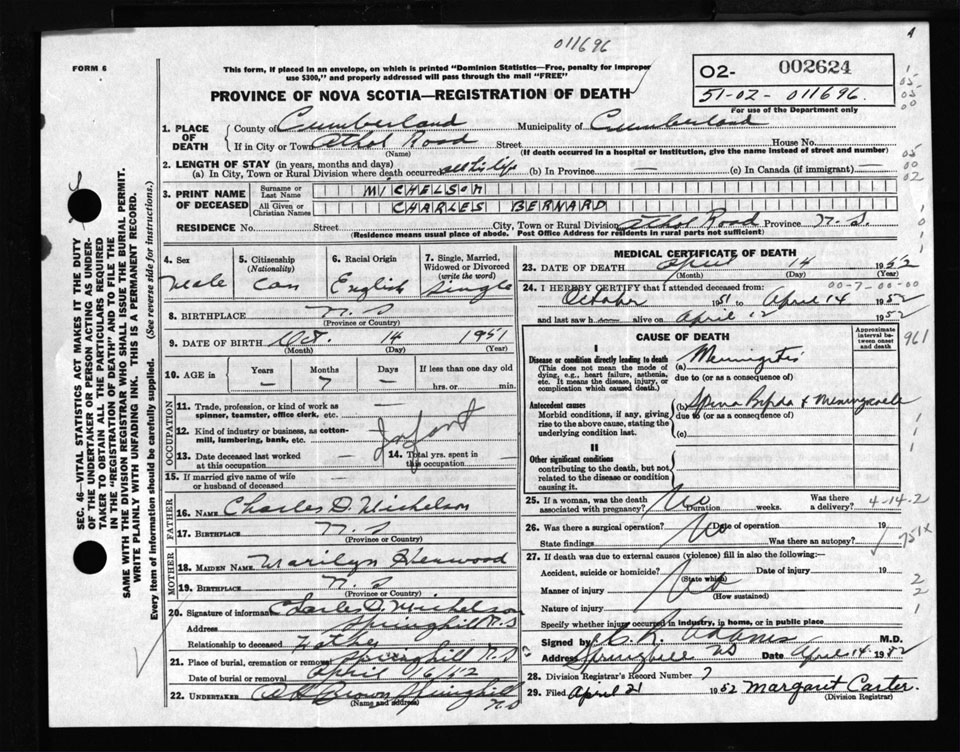 011696
4
FORM 6
This form, if placed in an envelope, on which is printed "Dominion Statistics—Free, penalty for improper
use $300," and properly addressed will pass through the mail "FREE"
02- 002624
51-02-011696
For use of the Department only
PROVINCE OF NOVA SCOTIA—REGISTRATION OF DEATH
1. PLACE OF DEATH
County of Cumberland Municipality of Cumberland
If in City or Town Athol Road Street House No.
(Name) (If death occurred in a hospital or institution, give the name instead of street and number)
2. LENGTH OF STAY (in years, months and days)
(a) In City, Town or Rural Division where death occurred (b) In Province — (c) In Canada (if immigrant) —
3. PRINT NAME OF DECEASED
Surname or Last Name MICHELSON
All Given or Christian Names CHARLES BERNARD
RESIDENCE No. Street City, Town or Rural Division Athol Road Province N. S.
(Residence means usual place of abode. Post Office Address for residents in rural parts not sufficient)
4. Sex Male
5. Citizenship (Nationality) Can
6. Racial Origin English
7. Single, Married, Widowed or Divorced (write the word) Single
8. BIRTHPLACE N. S
(Province or Country)
9. DATE OF BIRTH Oct. 14 1951
(Month) (Day) (Year)
10. AGE in Years — Months 7 Days — If less than one day old
hrs. or min.
OCCUPATION
11. Trade, profession, or kind of work as spinner, teamster, office clerk, etc.
12. Kind of industry or business, as cotton-mill, lumbering, bank, etc. Infant
13. Date deceased last worked at this occupation —
14. Total yrs. spent in this occupation —
15. If married give name of wife or husband of deceased —
FATHER
16. NAME Charles D. Michelson
17. BIRTHPLACE N. S
(Province or Country)
MOTHER
18. MAIDEN NAME Marilyn Henwood
19. BIRTHPLACE N. S
(Province or Country)
20. Signature of informant Charles D. Michelson
Address Springhill N.S
Relationship to deceased Father
21. Place of burial, cremation or removal Springhill N.S
Date of burial or removal April 16/52
22. UNDERTAKER Brown Springhill N.S
(Name and address)
MEDICAL CERTIFICATE OF DEATH
23. DATE OF DEATH April 14 1952
(Month) (Day) (Year)
24. I HEREBY CERTIFY that I attended deceased from: 00-7-00-00
October 1951 to April 14 1952
and last saw h alive on April 12 1952
CAUSE OF DEATH
Approximate interval between onset and death
961
I
Disease or condition directly leading to death
(This does not mean the mode of dying, e.g., heart failure, asthenia, etc. It means the disease, injury, or complication which caused death.)
(a) Meningitis
due to (or as a consequence of)
Antecedent causes
Morbid conditions, if any, giving rise to the above cause, stating the underlying condition last.
(b) Spina Bifida & Meningocele
due to (or as a consequence of)
(c)
II
Other significant conditions contributing to the death, but not related to the disease or condition causing it.
25. If a woman, was the death associated with pregnancy? No Duration weeks. Was there a delivery? 4-14-2
26. Was there a surgical operation? No Date of operation 19
State findings Was there an autopsy? 751x
27. If death was due to external causes (violence) fill in also the following:—
Accident, suicide or homicide? (State which) Date of injury 19
Manner of injury (How sustained)
Nature of injury
Specify whether injury occurred in industry, in home, or in public place
Signed by R. Adams M.D.
Address Springhill NS Date April 14 1952
28. Division Registrar's Record Number 7
29. Filed April 21 1952 Margaret Carter.
(Division Registrar)
SEC. 46—VITAL STATISTICS ACT MAKES IT THE DUTY
OF THE UNDERTAKER OR PERSON ACTING AS UNDER-
TAKER TO OBTAIN ALL THE PARTICULARS REQUIRED
IN THE "REGISTRATION OF DEATH" AND TO FILE THE
SAME WITH THE DIVISION REGISTRAR WHO SHALL ISSUE THE BURIAL PERMIT.
WRITE PLAINLY WITH UNFADING INK. THIS IS A PERMANENT RECORD.
Every item of information should be carefully supplied. (See reverse side for instructions.)